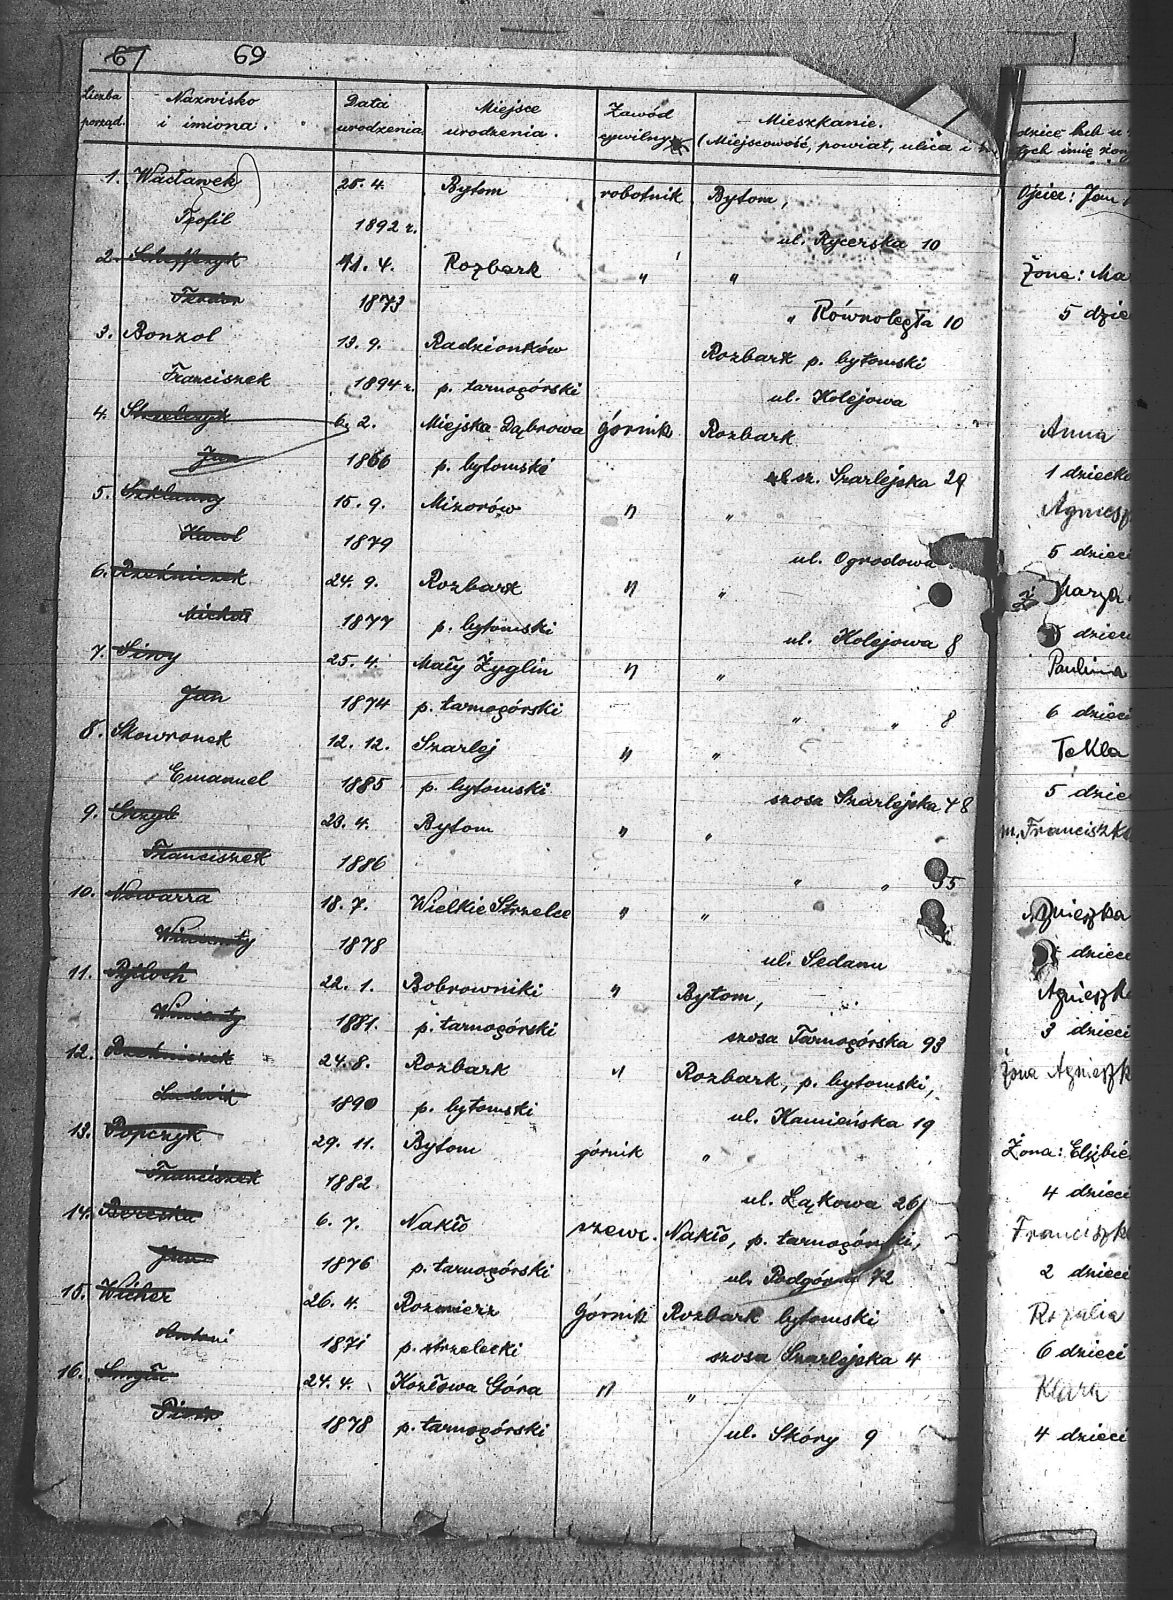 67 69
Liczba porząd. Nazwisko i imiona. Data urodzenia Miejsce urodzenia. Zawód cywilny Mieszkanie. (Miejscowość, powiat, ulica i
1. Wacławek 25. 4. Bytom robotnik Bytom, Ojciec: Jan
Teofil 1892 r. ul. Rycerska 10
2. Scheffczyk 11. 4. Rozbark " " Żona: Ma
Teodor 1873 " Równoległa 10 5 dzie
3. Bonzol 13. 9. Radzionków Rozbark p. bytomski
Franciszek 1894 r. p. tarnogórski ul. Kolejowa
4. 6. 2. Miejska Dąbrowa górnik Rozbark Anna
Jan 1866 p. bytomski sz. Szarlejska 29 1 dziecko
5. Szklanny 15. 9. Mizorów " " Agniesz
Karol 1879 ul. Ogrodowa 5 dzieci
6. Rzeźniczek 24. 9. Rozbark " " Marya
Michał 1877 p. bytomski ul. Kolejowa 8 dzieci
7. Siwy 25. 4. Mały Żyglin " " Paulina
Jan 1874 p. tarnogórski " " 8 6 dzieci
8. Skowronek 12. 12. Szarlej " " Tekla
Emanuel 1885 p. bytomski szosa Szarlejska 48 5 dzie
9. Grzyb 23. 4. Bytom " " m. Franciszka
Franciszek 1886 " " 55
10. Nowarra 18. 7. Wielkie Strzelce " " Agnieszka
Wincenty 1878 ul. Sedanu dzieci
11. Pytloch 22. 1. Bobrowniki " Bytom, Agnieszk
Wincenty 1881. p. tarnogórski szosa Tarnogórska 93 3 dzieci
12. Rzeźniczek 24. 8. Rozbark " Rozbark, p. bytomski, Żona Agnieszk
Ludwik 1890 p. bytomski ul. Kamieńska 19
13. Popczyk 29. 11. Bytom górnik " Żona: Elżbie
Franciszek 1882 ul. Łąkowa 26 4 dzieci
14. Bereska 6. 7. Nakło szewc. Nakło, p. tarnogórski, Franciszk
Jan 1876 p. tarnogórski ul. Podgórna 72 2 dzieci
15. Wicher 26. 4. Rozmierz Górnik Rozbark bytomski Rozalia
Antoni 1871 p. strzelecki szosa Szarlejska 4 6 dzieci
16. Smyła 24. 4. Kozłowa Góra " " Klara
Piotr 1878 p. tarnogórski ul. Skóry 9 4 dzieci